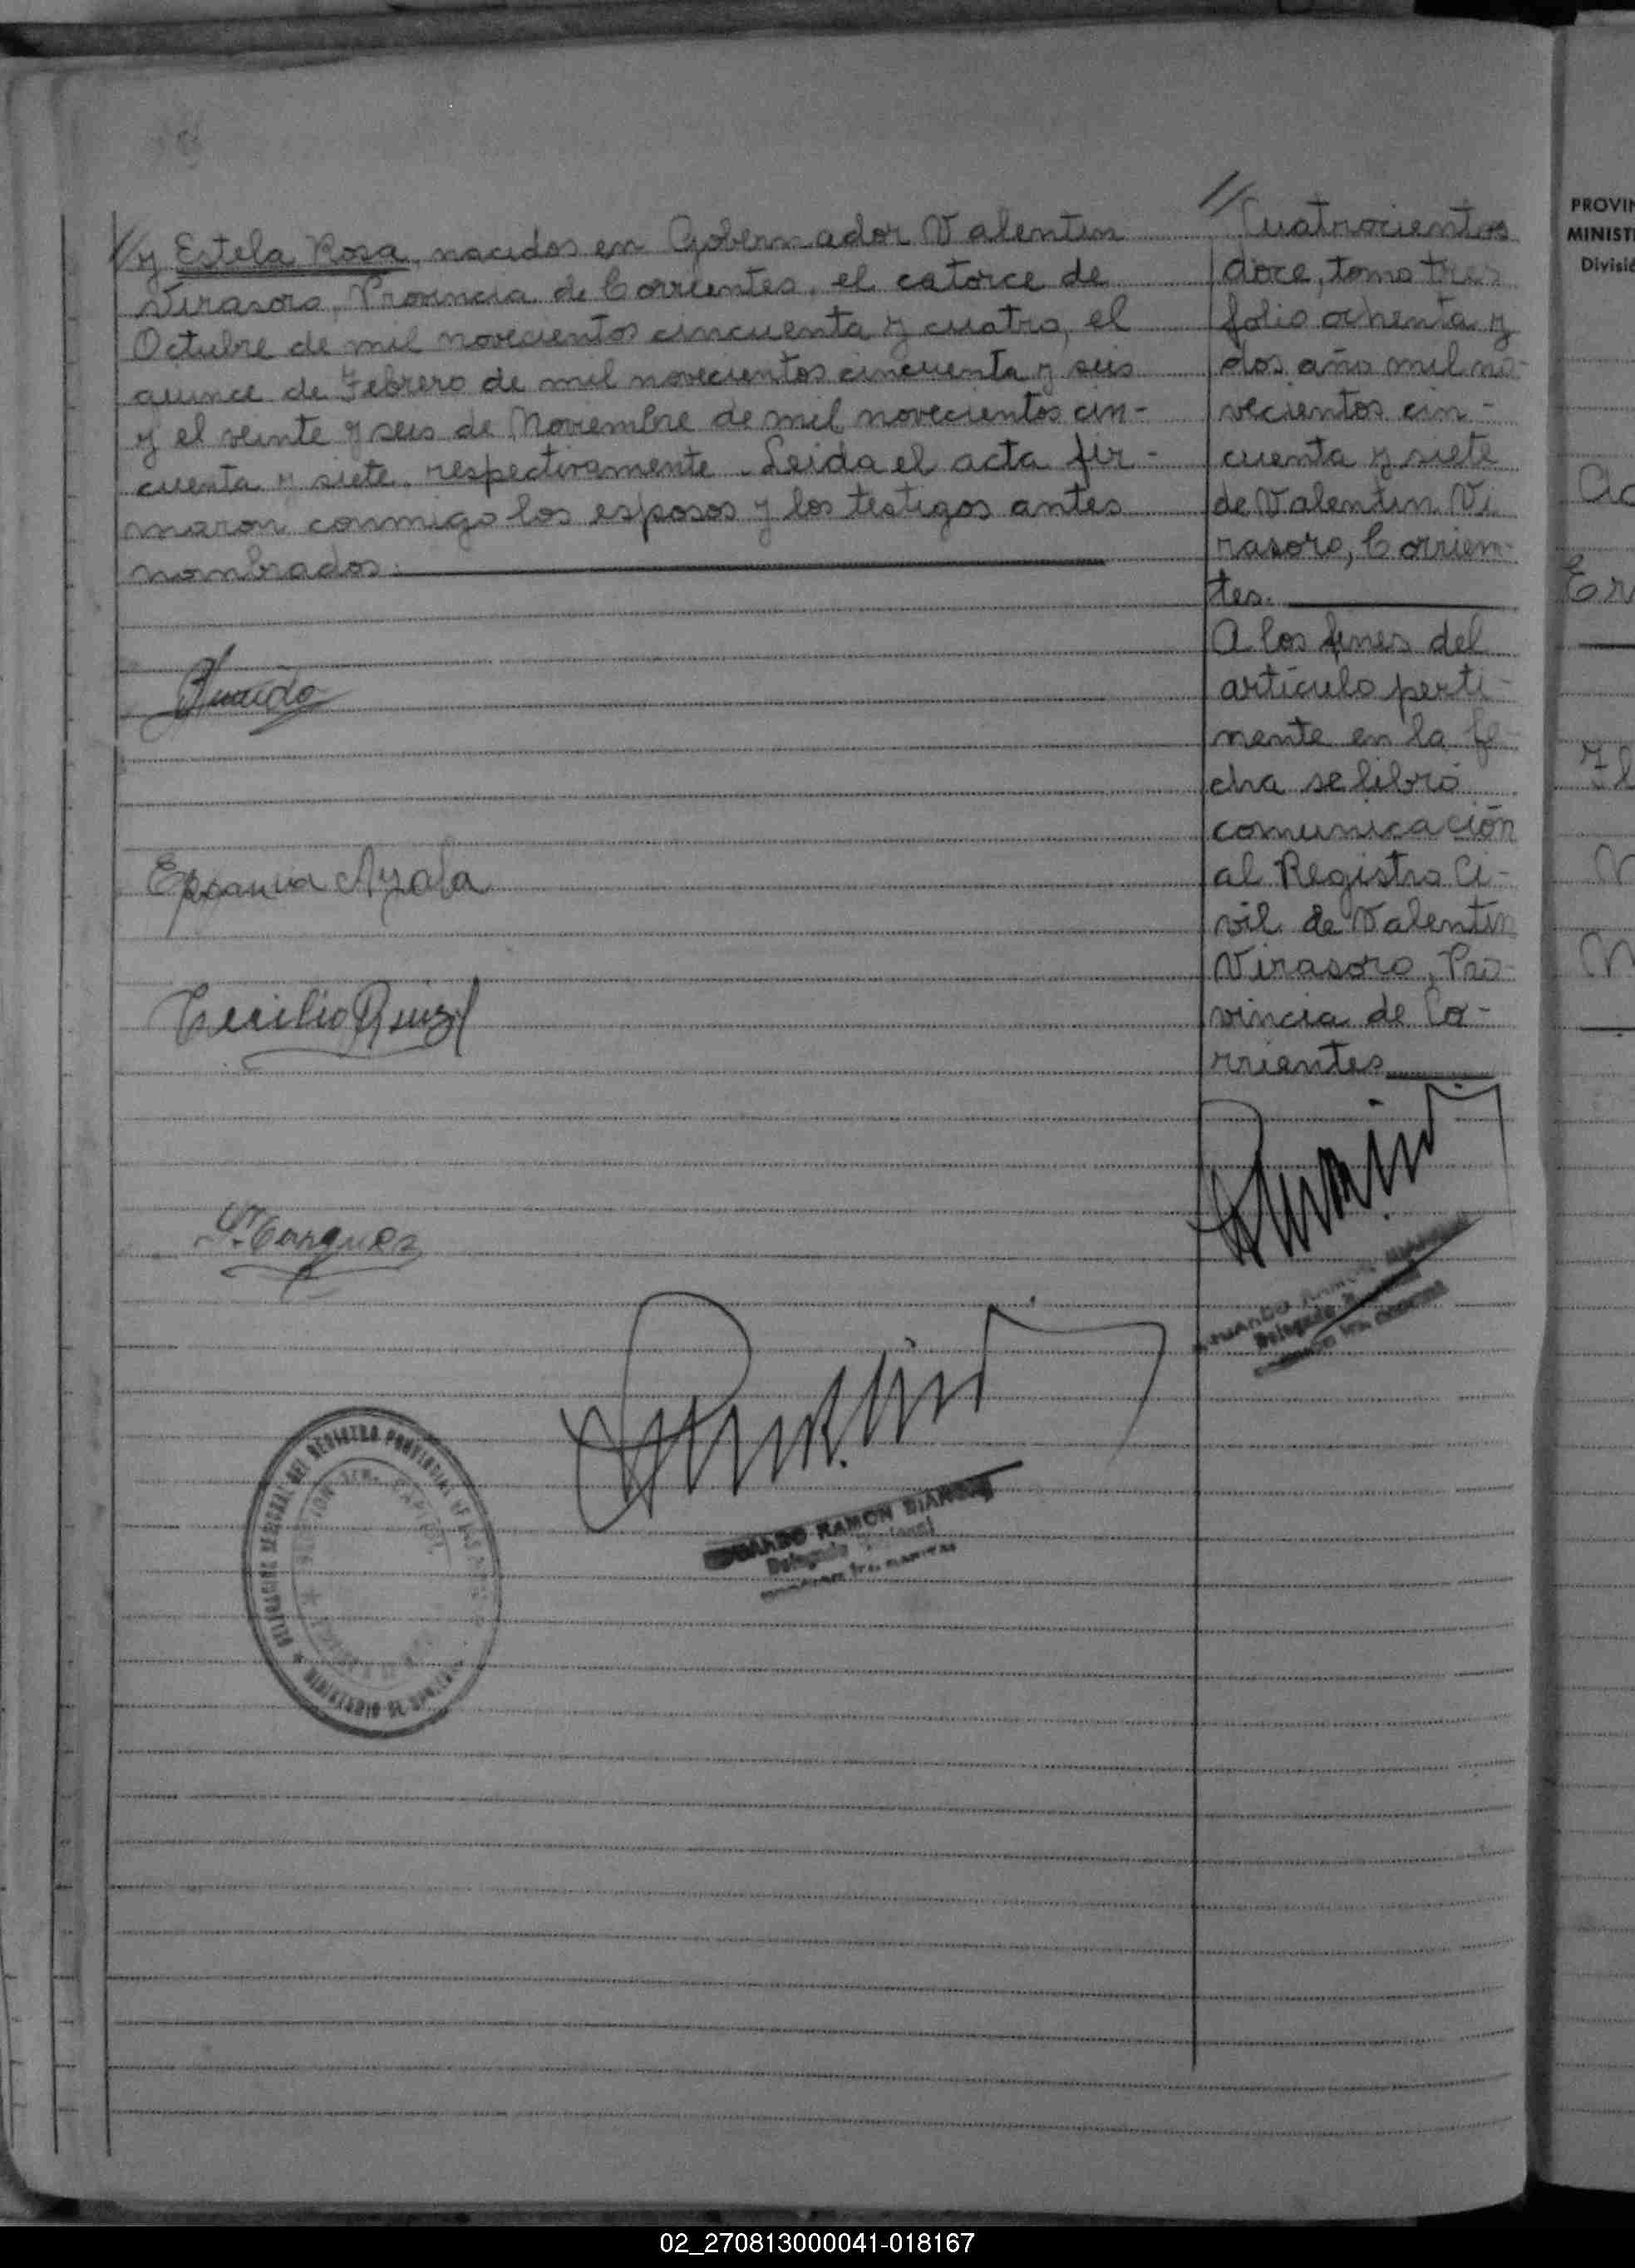 // y Estela Rosa, nacidos en Gobernador Valentin
Virasoro, Provincia de Corrientes, el catorce de
Octubre de mil novecientos cincuenta y cuatro, el
quince de Febrero de mil novecientos cincuenta y seis
y el veinte y seis de Noviembre de mil novecientos cin-
cuenta y siete, respectivamente. Leida el acta fir-
maron conmigo los esposos y los testigos antes
nombrados.
Ayala
Cecilio Ruiz
RAMON
Delegado
DEL REGISTRO PROVINCIAL DE LAS
MINISTERIO DE
// Cuatrocientos
doce, tomo tres
folio ochenta y
dos año mil no-
vecientos cin-
cuenta y siete
de Valentin Vi
rasoro, Corrien-
tes.
A los fines del
artículo perti-
nente en la fe-
cha se libró
comunicación
al Registro Ci-
vil de Valentin
Virasoro, Pro-
vincia de Co-
rrientes
Delegado
PROVIN
MINIST
Divisi
02_270813000041-018167